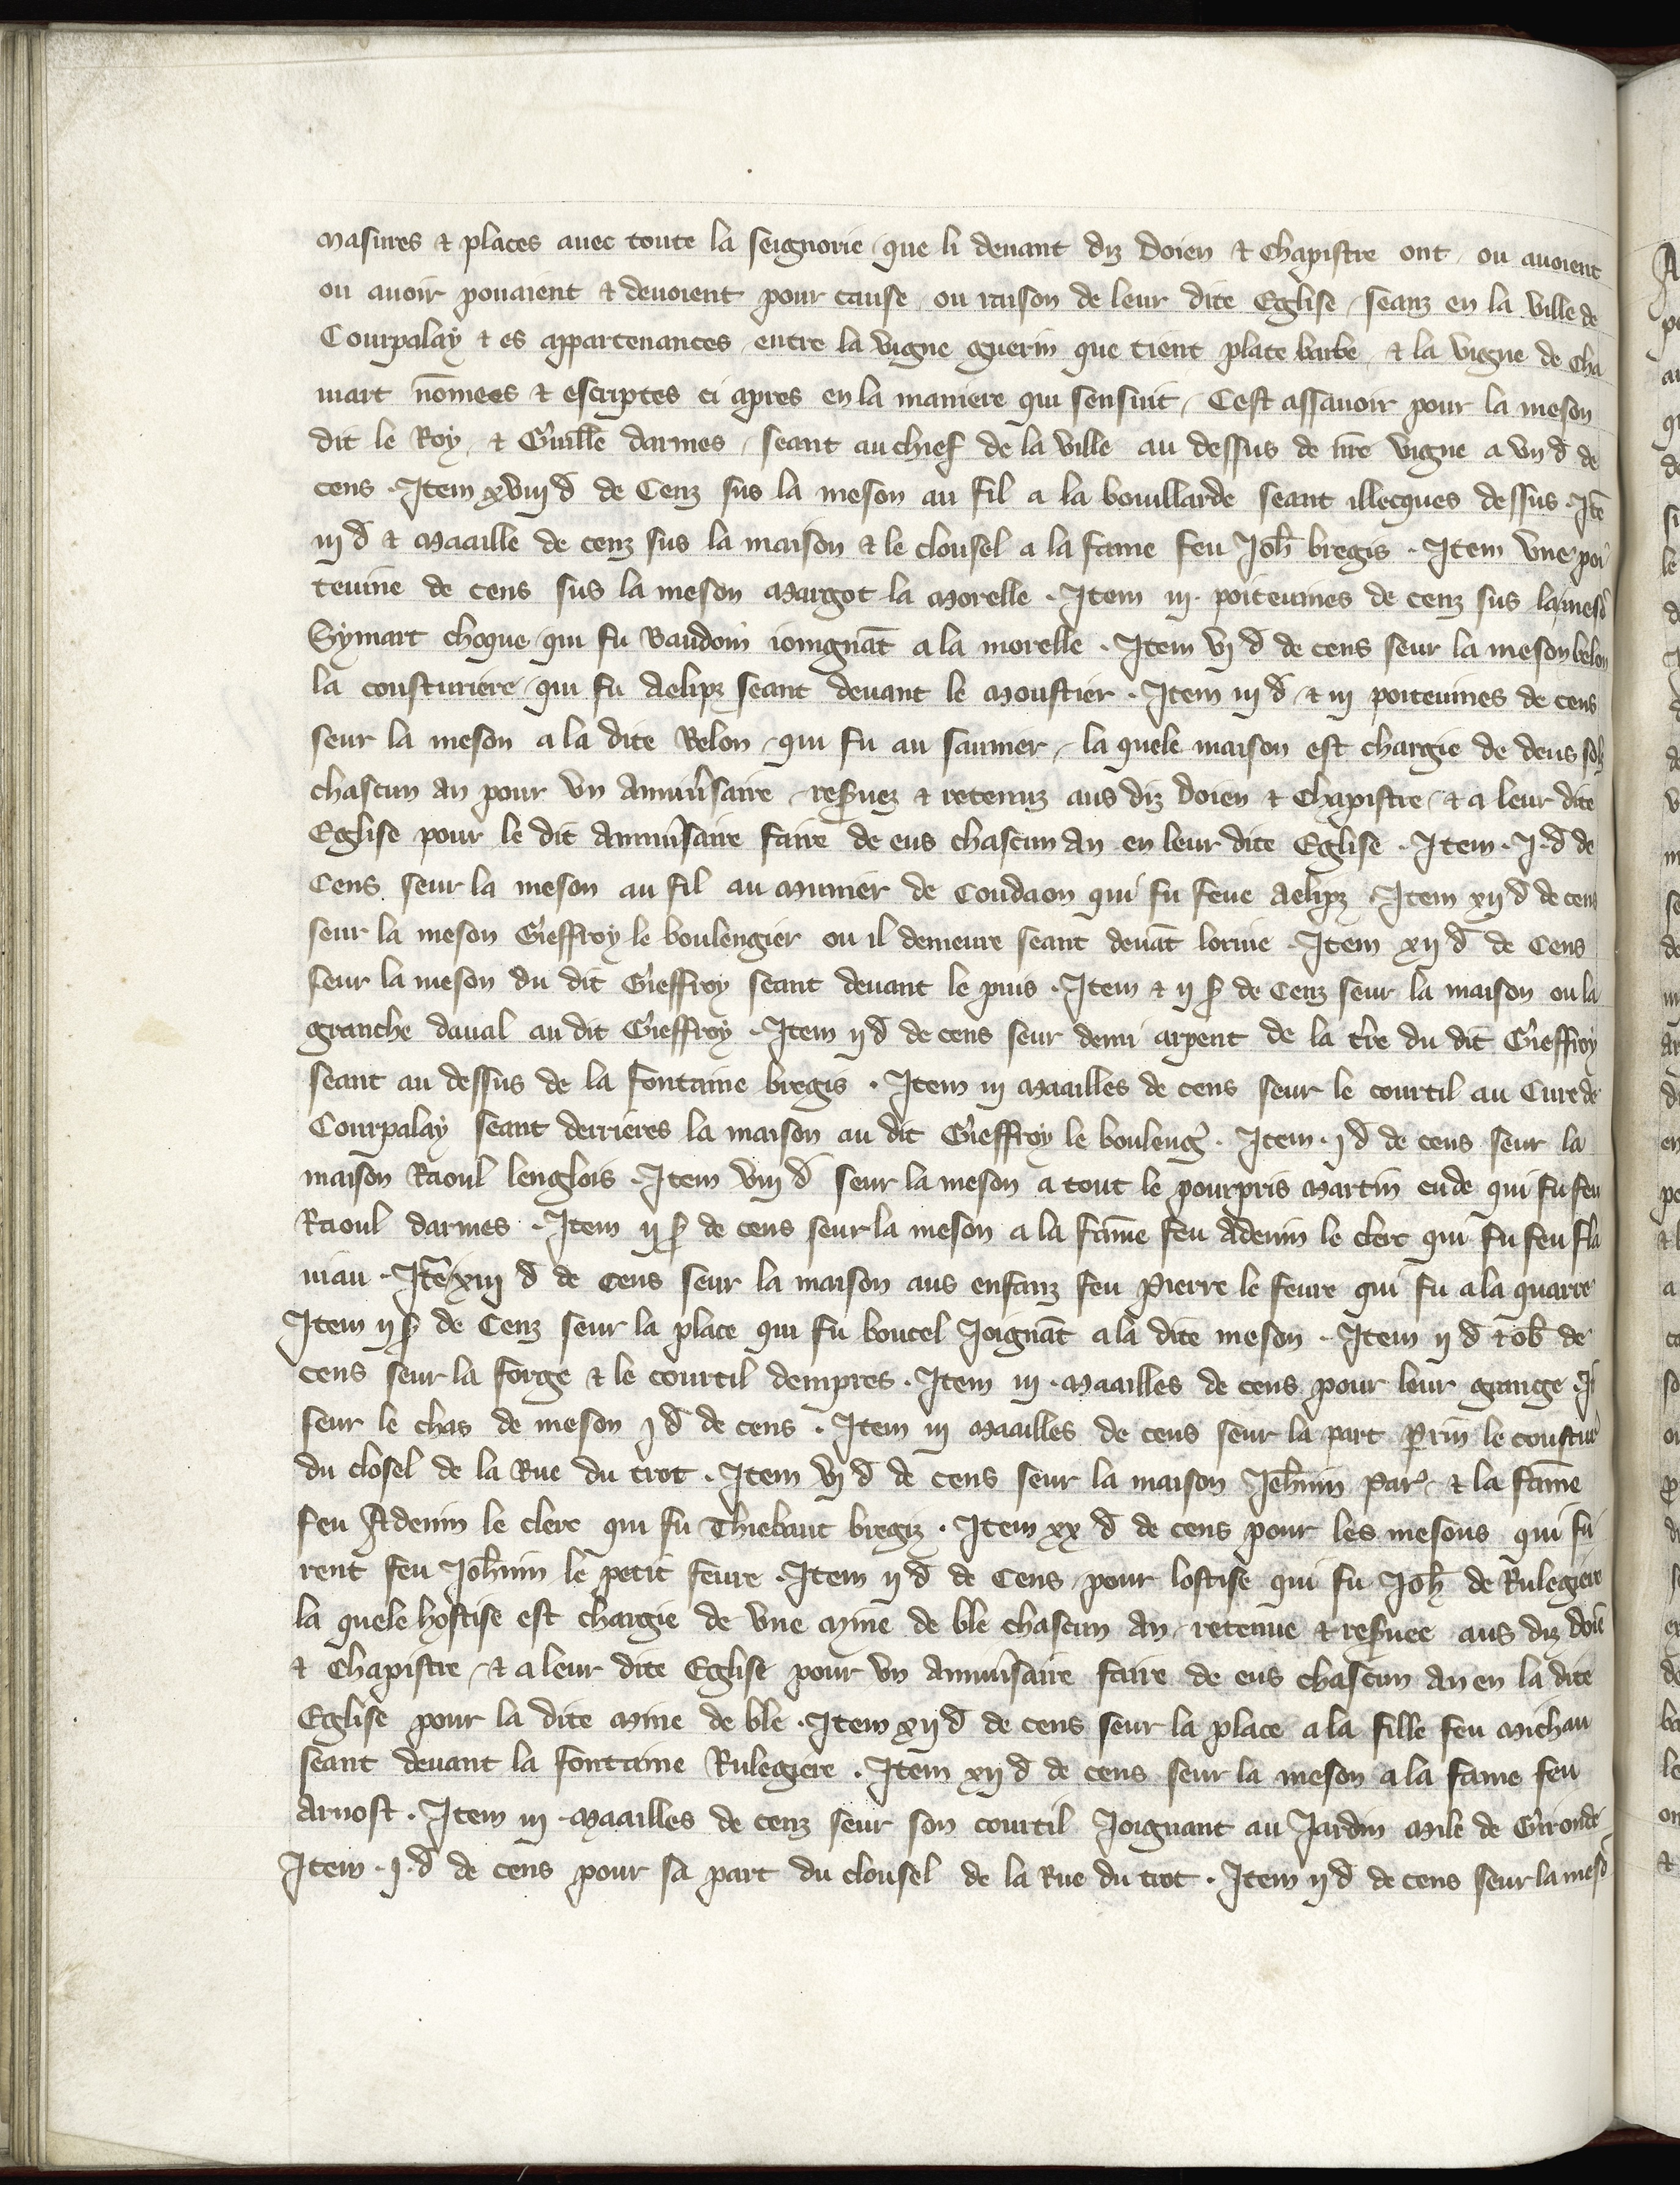 masures & places auec toute la seignorie que li deuant diz Doien & Chapistre ont ou auoient
ou auoir pouaient & deuoient pour cause ou raison de leur dite Eglise seanz en la ville de
Courpalay & es appartenances entre la vigne guerin que tient plate barbe & la vigne de cha
mart nōmees & escriptes ci apres en la maniere qui sensuit Cest assauoir pour la meson
dit le Roy & Guill̄e darmes seant au chief de la ville au dessus de nr̄e vigne a vij d̄ de
cens . Item xviij d̄ de Cenz sus la meson au fil a la bouillarde seant illecques dessus . Itē
iij d̄ & Maaille de cenz sus la maison & le clousel a la fame feu Joh̄ bregis . Item vne poi
teuine de cens sus la meson Margot la Morelle . Item iij poiteuines de cenz sus la mesō
Symart choque qui fu Baudoin ioingnāt a la morelle . Item vj d̄ de cens seur la meson belon
la cousturiere qui fu Aelipz seant deuant le Moustier . Item iij d̄ & iij poiteuines de cens
seur la meson a la dite Belon qui fu au saunier la quele maison est chargie de deus solz
chascun an pour vn anniu̾saire res̾uez & retenuz aus diz Doien & Chapistre & a leur dite
Eglise pour le dit anniu̾saire faire de eus chascun an en leur dite Eglise . Item . J . d̄ de
Cens seur la meson au fil au Munier de Coudaon qui fu feue Aelipz . Item xij d̄ de cens
seur la meson Gieffroy le boulengier ou il demeure seant deuāt lorme . Item xij d̄ de Cens
seur la meson du dit Gieffroy seant deuant le puis . Item & ij s̄ de Cenz seur la maison ou la
granche daual au dit Gieffroy . Item ij d̄ de cens seur demi arpent de la t̾re du dit Gieffroy
seant au dessus de la fontaine bregis . Item iij Maailles de cens seur le courtil au Cure de
Courpalay seant derrieres la maison au dit Gieffroy le bouleng̾ . Item . j d̄ de cens seur la
maison Raoul lenglois . Item viij d̄ seur la meson a tout le pourpris Martin eude qui fu feu
Raoul darmes . Item ij s̄ de cens seur la meson a la fāme feu Adenin le clerc qui fu feu fla
miau . Itē xiij d̄ de Cens seur la maison aus enfanz feu Pierre le feure qui fu a la quarre
Item ij s̄ de Cenz seur la place qui fu boucel Joignāt a la dite meson . Item ij d̄ & ob̄ de
cens seur la forge & le courtil dempres . Item iij . Maailles de cens pour leur grange . Jt̄
seur le chas de meson j d̄ de cens . Item iij Maailles de cens seur la part P̱rin le coustur̾
du closel de la Rue du trot . Item vj d̄ de cens seur la maison Jeh̄nin Par & la fāme
feu Adenin le clerc qui fu Thiebaut bregiz . Item xx d̄ de cens pour les mesons qui fu
rent feu Joh̄nin le petit feure . Item ij d̄ de Cens pour lostise qui fu Joh̄ de Rulegiere
la quele hostise est chargie de vne Mine de ble chascun an retenue & res̾uee aus diz doiē
& Chapistre & a leur dite Eglise pour vn anniu̾saire faire de eus chascun an en la dite
Eglise pour la dite Mine de ble . Item xij d̄ de cens seur la place a la fille feu Michau
seant deuant la fontaine Rulegiere . Item xij d̄ de cens seur la meson a la fame feu
Arnost . Item iij . Maailles de cenz seur son courtil Joignant au Jardin Mile de Gironde
Item . j . d̄ de cens pour sa part du clousel de la Rue du trot . Item ij d̄ de cens seur la mesō